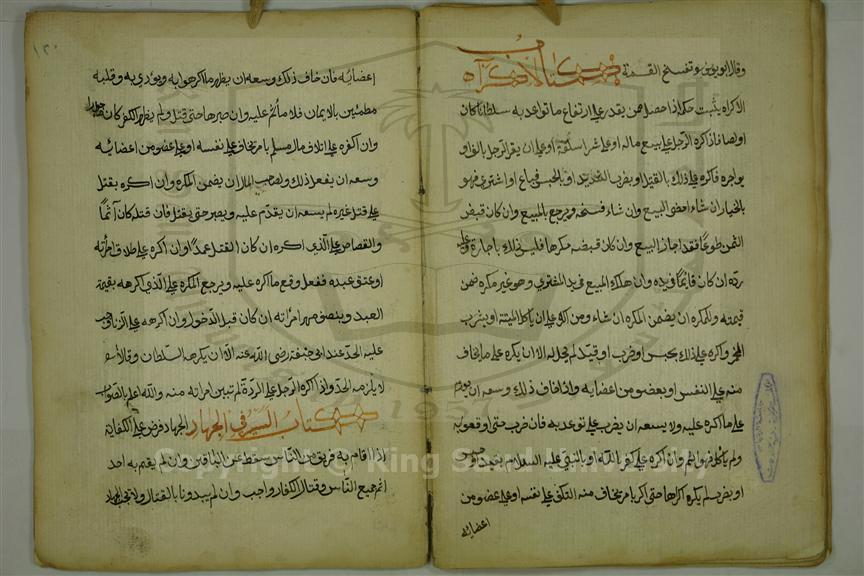 وقال ابو يوسف تفسخ القسمة كتاب الاكراه
الاكراه يثبت حكمه اذا حصل ممن يقدر على ارتفاع ما تواعد به سلطانا كان
اولصا فاذا كره الرجل على بيع ماله او على شراء سلعة او على ان يقر لرجل بالف او
يواجره فاكره على ذلك بالقتل او بضرب الشديد او بالحبس فباع او اشترى فهو
بالخيار ان شاء امضى البيع وان شاء فسخه ويرجع بالمبيع وان كان قبض
الثمن طوعا فقد اجاز البيع وان كان قبضه مكرها فليس ذلك باجازة وعليه
رده ان كان قائما في يده وان هلك المبيع في يد المشتري وهو غير مكره ضمن
قيمته وللمكره ان يضمن المكره ان شاء ومن اكره على ان ياكل الميتة او يشرب
الخمر واكره على ذلك بحبس او ضرب او قيد لم يحل له الا ان يكره على ما يخاف
منه على النفس او بعضو من اعضايه واذا خاف ذلك وسعه ان يقدم
على ما اكره عليه ولا يسعه ان يضرب على توعد به فان ضرب حتى اوقعو به
ولم ياكل فهو اثم وان اكره على كفر الله او بالنبي عليه السلام بقيد او حبس
او بضرب لم يكره اكراها حتى اكره بامر يخاف منه التكف على نفسه او على عضو من
اعضائه
١٢٠
اعضائه فان خاف ذلك وسعه ان يظهر ما اكرهوا به ويؤدي به وقلبه
مطمئين بالايمان فلا ماثم عليه وان صبر ها حتى قتل ولم يظهر الكفر كان ماجورا
وان اكره على اتلاف مال مسلم بامر يخاف على نفسه او على عضو من اعضائه
وسعه ان يفعل ذلك ولصاحب المال ان يضمن المكره وان اكره بقتل
على قتل غيره لم يسعه ان يقدم عليه ويصبر حتى يقتل فان قتله كان آثما
والقصاص على الذي اكره ان كان القتل عمدا وان اكره على طلاق امرأته
او عتق عبده ففعل وقع ما اكره عليه ويرجع المكره على الذي اكرهه بقيمة
العبد وبنصف مهر امرأته ان كان قبل الدخول وان اكرهه على الزنا وجب
عليه الحد عند ابي حنيفة رضى الله عنه الا ان يكرهه السلطان وقالا
لا يلزمه الحد واذا اكره الرجل على الردة لم تبين امراته منه والله اعلم بالصواب
كتاب السير في الجهاد الجهاد فرض على الكفاية
اذا اقام به فريق من الناس سقط عن الباقين وان لم يقم به احد
اثم جميع الناس وقتال الكفار واجب وان لم يبدونا بالقتال ولا يجب الجهاد
Copyright © King Saud University